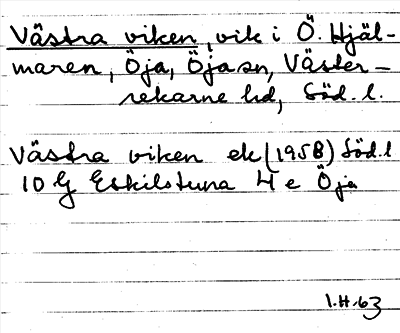 Västra viken, vik i Ö. Hjäl-
maren, Öja, Öja sn, Väster-
rekarne hd, Söd. l.
Västra viken ek (1958) Söd. l
10 G Eskilstuna 4 e Öja
1.H.63